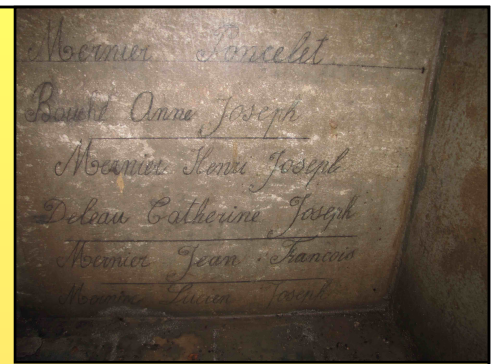 Mernier Poncelet
Bouché Anne Joseph
Mernier Henri Joseph
Deleau Catherine Joseph
Mernier Jean François
Mernier Lucien Joseph